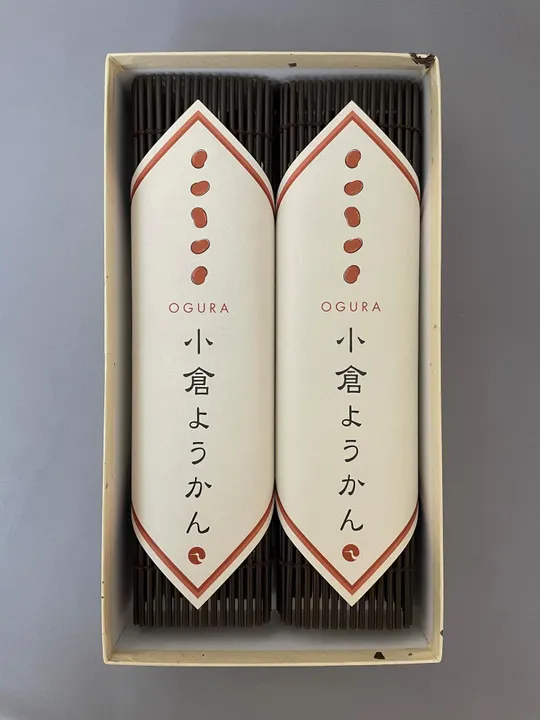 OGURA
小倉ようかん
OGURA
小倉ようかん